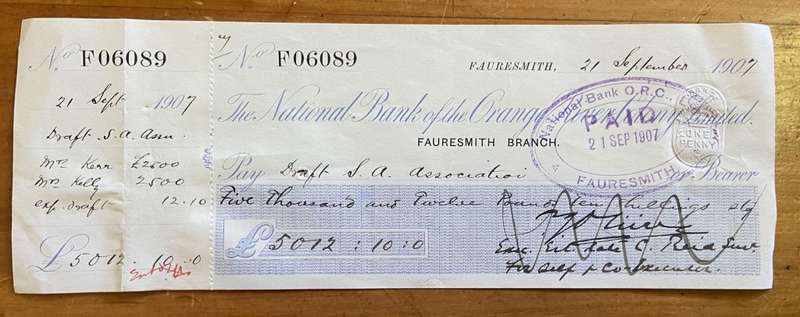 No F06089
21 Sept 1907
Draft S.A. Assn.
Mrs Kerr £2500
Mrs Kelly 2500
exp. draft 12.10
£5012.10.0
No F06089
FAURESMITH, 21 September 1907
The National Bank of the Orange River Colony Limited.
FAURESMITH BRANCH.
National Bank O.R.C.,
PAID
21 SEP 1907
FAURESMITH
ONE
PENNY
Pay Draft S. A. Association or Bearer
Five Thousand and Twelve Pounds ten shillings stg
£5012:10:0
Exc. Est late C.
For self & co executor.